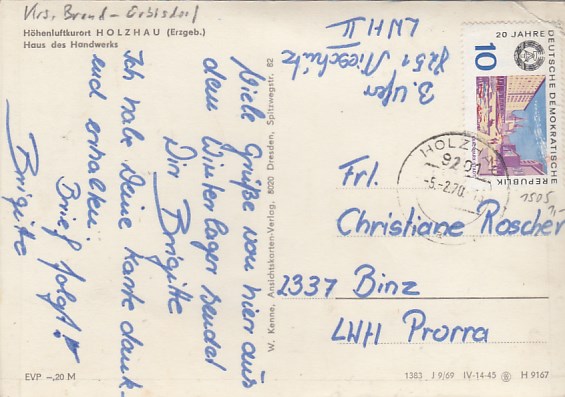 Krs. Brand-Erbisdorf
Höhenluftkurort HOLZHAU (Erzgeb.)
Haus des Handwerks
Viele Grüße von hier aus
dem Winterlager sendet
Dir Brigitte
Ich habe Deine Karte dank-
end erhalten
Brief folgt!
Brigitte
B. Ufer
8251 Nieschütz
LWH II
W. Kenne, Ansichtskarten-Verlag, 8020 Dresden, Spitzwegstr. 82
20 JAHRE
DEUTSCHE DEMOKRATISCHE
REPUBLIK
10
HOLZHAU
9201
-5.-2.70
1505
1,-
Frl.
Christiane Roscher
2337 Binz
LWH Prorra
EVP -,20 M
1383 J 9/69 IV-14-45 H 9167